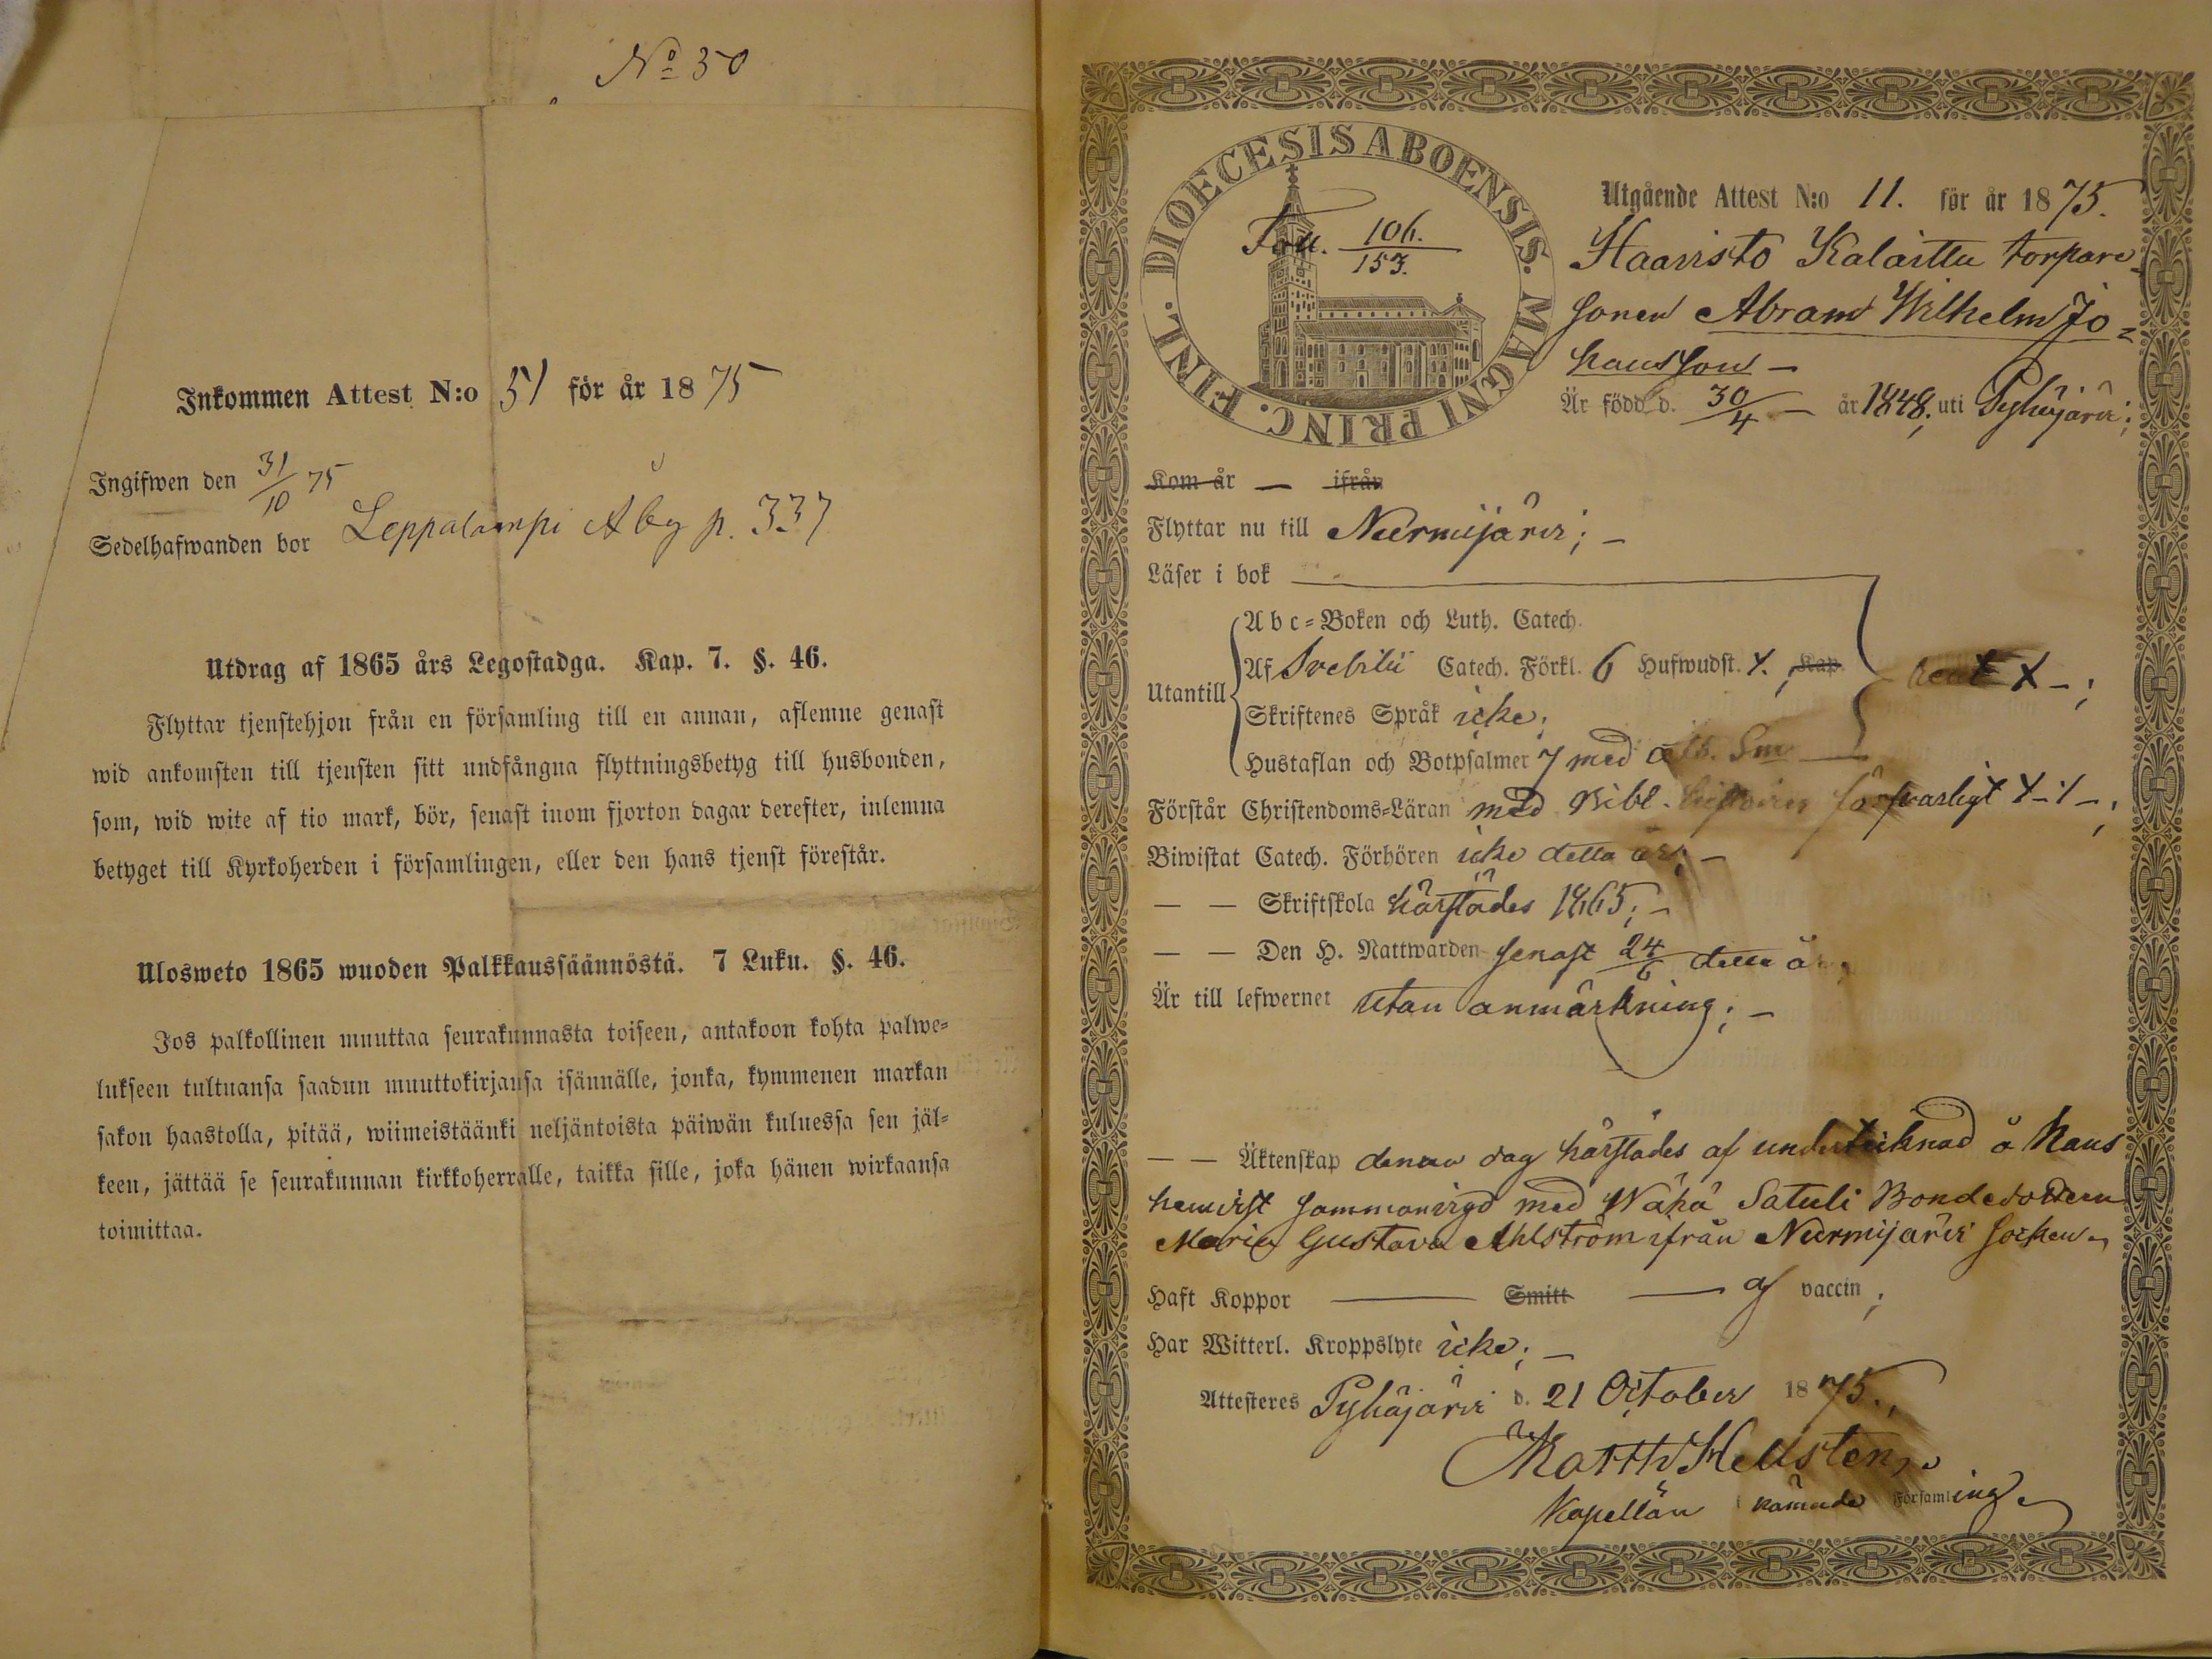 No 30
Inkommen Attest N:o 51 för år 1875
Ingifwen den 31/10 75
Sedelhafwanden bor Leppalampi Åby p. 337
Utdrag af 1865 års Legostadga. Kap. 7. §. 46.
Flyttar tjenstehjon från en församling till en annan, aflemne genast
wid ankomsten till tjensten sitt undfångna flyttningsbetyg till husbonden,
som, wid wite af tio mark, bör, senast inom fjorton dagar derefter, inlemna
betyget till Kyrkoherden i församlingen, eller den hans tjenst förestår.
Ulosweto 1865 wuoden Palkkaussäännöstä. 7 Luku. §. 46.
Jos palkollinen muuttaa seurakunnasta toiseen, antakoon kohta palwe=
lukseen tultuansa saadun muuttokirjansa isännälle, jonka, kymmenen markan
sakon haastolla, pitää, wiimeistäänki neljäntoista päiwän kuluessa sen jäl=
keen, jättää se seurakunnan kirkkoherralle, taikka sille, joka hänen wirkaansa
toimittaa.
DIOECESIS ABOENSIS. MAGNI PRINC. FINL.
106.
153.
Utgående Attest N:o 11. för år 1875.
Haavisto Kalaittu torpare
sonen Abram Wilhelm Jo=
hansson –
Är född d. 30/4 – år 1848; uti Pyhäjärvi;
Kom år — ifrån
Flyttar nu till Nurmijärvi; –
Läser i bok
Abc=Boken och Luth. Catech.
Utantill
Af Svebilii Catech. Förkl. 6 Hufwudst. X. Kap.
X –;
Skriftenes Språk icke;
Hustaflan och Botpsalmer 7 med
Förstår Christendoms=Läran med Bibl. historien försvarligt X–X–;
Biwistat Catech. Förhören icke detta år; –
— — Skriftskola härstädes 1865; –
— — Den H. Nattwarden senast 24/6 detta år;
Är till lefwernet utan anmärkning; –
— — Äktenskap denna dag härstädes af undertecknad å hans
hemvist sammanvigd med Wähä Satuli Bondedottern
Maria Gustava Ahlström ifrån Nurmijärvi socken,
Haft Koppor — Smitt — af vaccin;
Har Witterl. Kroppslyte icke; –
Attesteres Pyhäjärvi d. 21 October 1875.,
Matth. Hellsten,
Kapellan i nämnde Församling.